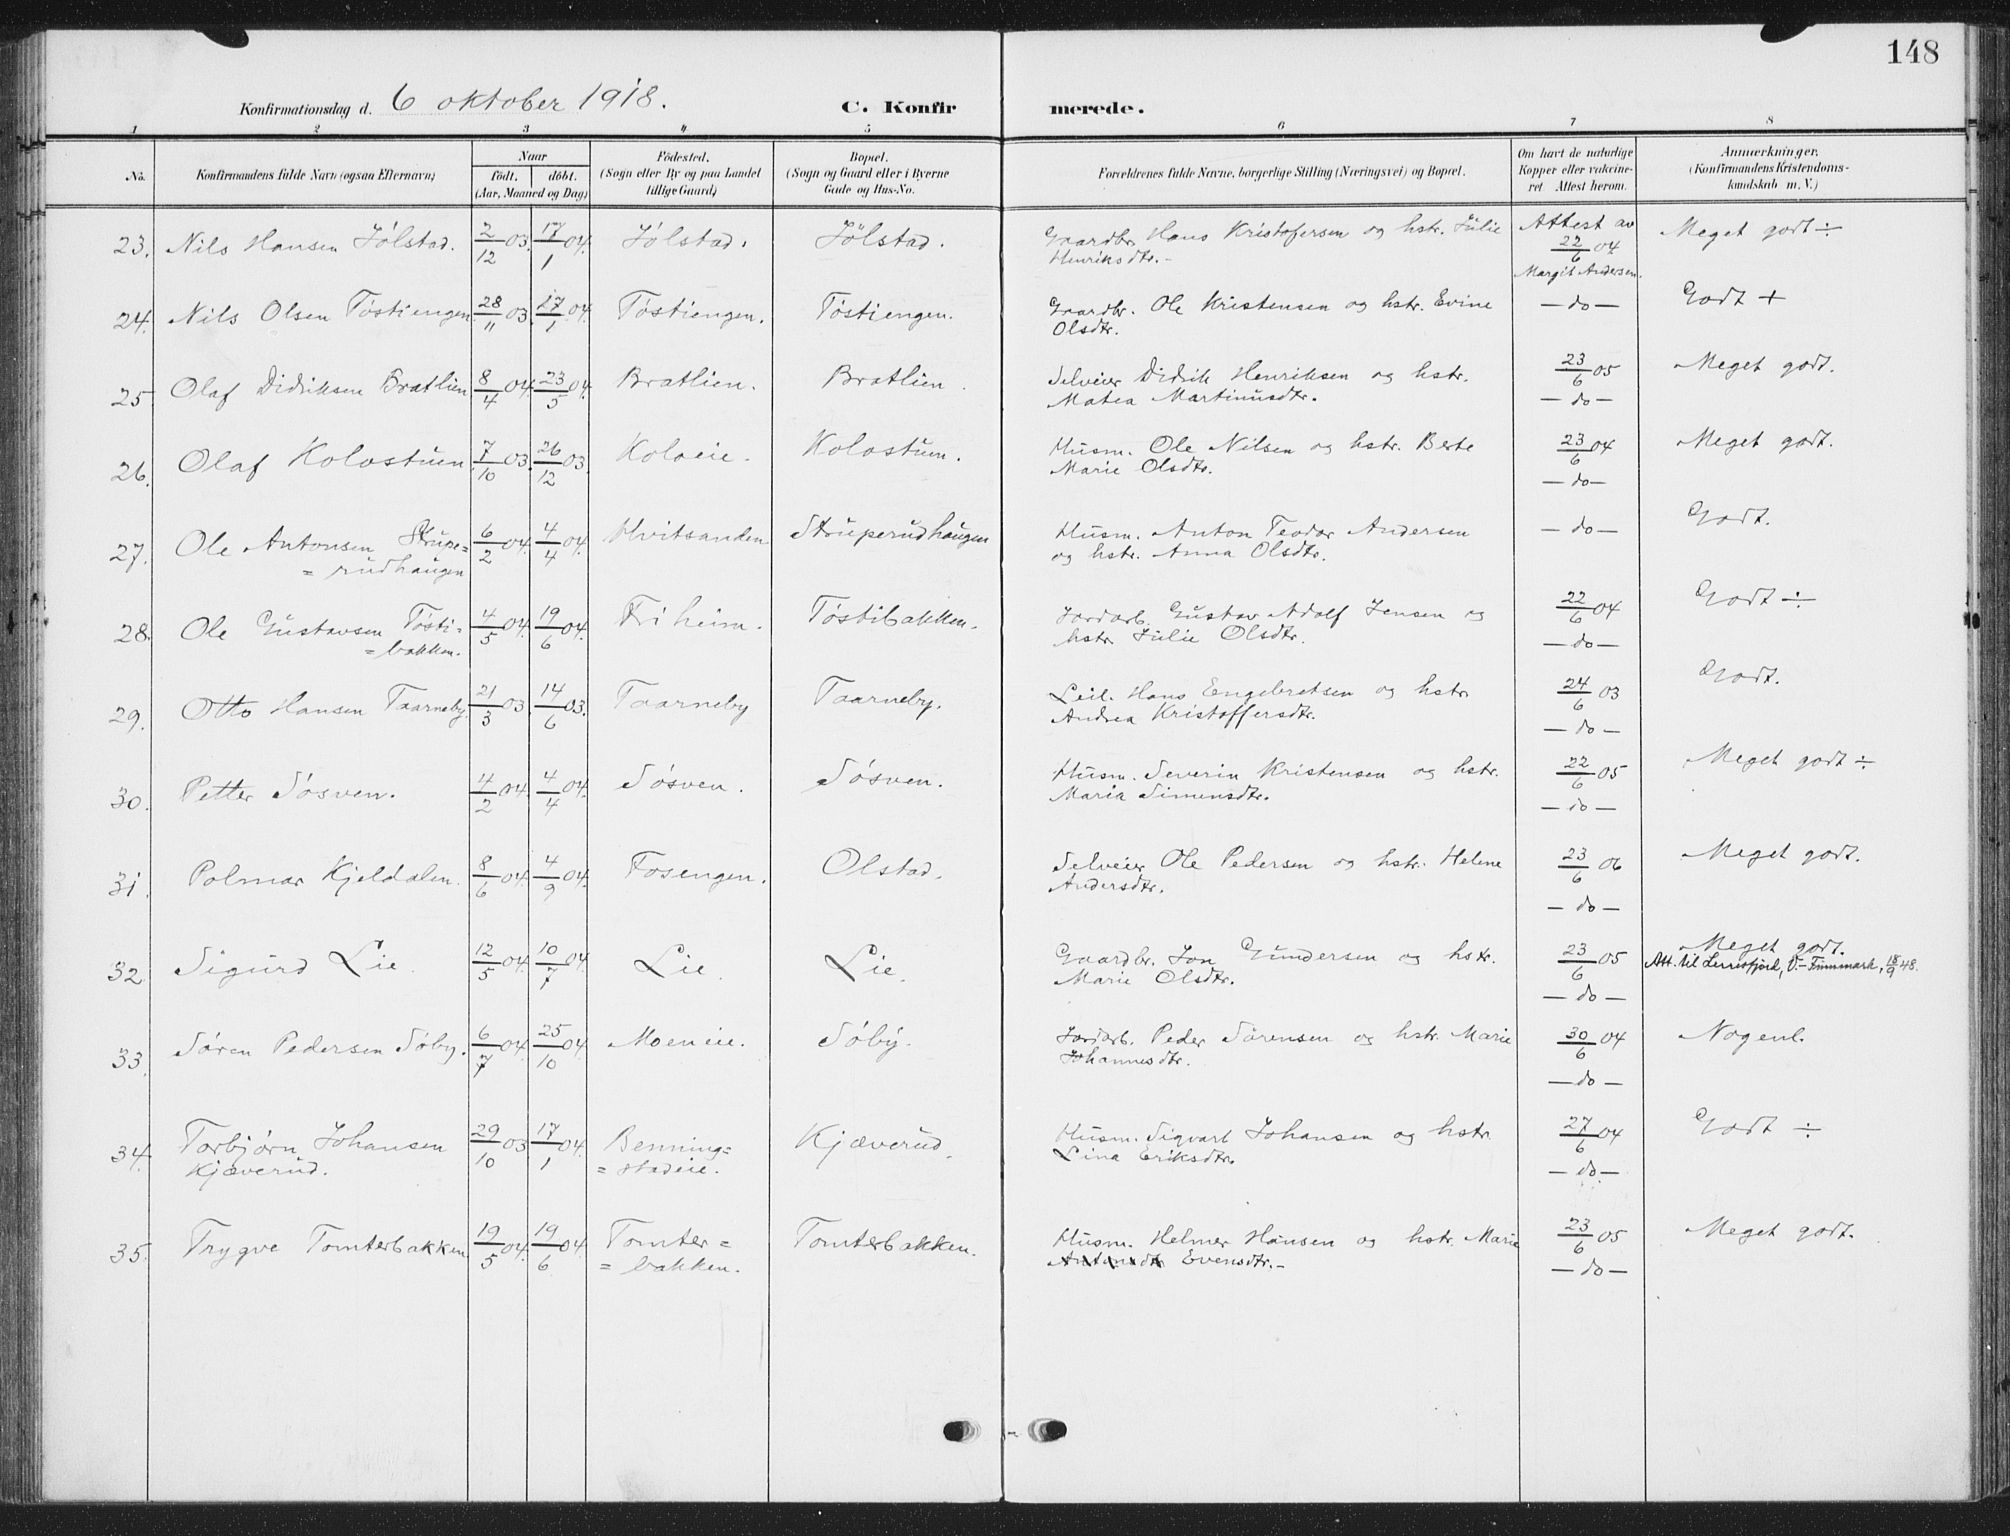 148
Konfirmationsdag d. 6 oktober 1918. C. Konfirmerede.
1 2 3 4 5 6 7 8
No. Konfirmandens fulde Navn (ogsaa Efternavn) Naar født. døbt. (Aar, Maaned og Dag) Födested. (Sogn eller By og paa Landet tillige Gaard) Bopæl. (Sogn og Gaard eller i Byerne Gade og Hus-No. Forældrenes fulde Navne, borgerlige Stilling (Næringsvei) og Bopæl. Om havt de naturlige Kopper eller vakcineret. Attest herom. Anmærkninger. (Konfirmandens Kristendomskundskab m. V.)
23. Nils Hansen Jølstad. 2/12 03. 17/1 04. Jølstad. Jølstad. Gaardbr. Hans Kristofersen og hstr. Julie Attest av 22/6 04 Meget godt ÷
Henriksdtr. - Margit Andersen.
24. Nils Olsen Tøstiengen 28/11 03. 17/1 04. Tøstiengen. Tøstiengen. Gaardbr. Ole Kristensen og hstr. Evine — do — Godt +
Olsdtr.
25. Olaf Didriksen Bratlien 8/4 04. 23/5 04. Bratlien. Bratlien. Selveier Didrik Henriksen og hstr. 23/6 05 Meget godt.
Matea Martinusdtr. — do —
26. Olaf Kolostuen 7/10 03. 26/12 03. Koloeie. Kolostuen. Husm. Ole Nilsen og hstr. Berte 23/6 04 Meget godt.
Marie Olsdtr. — do —
27. Ole Antonsen Strupe= 6/2 04. 4/4 04. Hvitsanden Struperudhaugen Husm. Anton Teodor Andersen — do — Godt.
= rudhaugen og hstr. Anna Olsdtr.
28. Ole Gustavsen Tøsti= 4/5 04. 19/6 04. Friheim. Tøstibakken. Jordarb. Gustav Adolf Jensen og 22/6 04 Godt ÷
= bakken. hstr. Julie Olsdtr. — do —
29. Otto Hansen Taarneby. 21/3 03. 14/6 03. Taarneby Taarneby. Leil. Hans Engebretsen og hstr. 24/6 03 Godt.
Andrea Kristoffersdtr. — do —
30. Petter Søsven. 4/2 04. 4/4 04. Søsven. Søsven. Husm. Severin Kristensen og hstr. 22/6 05 Meget godt ÷
Maria Simensdtr. — do —
31. Polmar Kjeldalen. 8/6 04. 4/9 04. Fosengen. Olstad. Selveier Ole Pedersen og hstr. Helene 23/6 06 Meget godt.
Andersdtr. — do —
32. Sigurd Lie. 12/5 04. 10/7 04. Lie. Lie. Gaardbr. Jon Gundersen og hstr. 23/6 05 Meget godt.
Marie Olsdtr. — do — Att. til Lerrisfjord, V.-Finnmark, 18/9 48.
33. Søren Pedersen Søby. 6/7 04. 25/10 04. Moeneie. Søby. Jordarb. Peder Sørensen og hstr. Marie 30/6 04 Nogenl.
Johannesdtr. — do —
34. Torbjørn Johansen 29/10 03 17/1 04. Benning= Kjæverud. Husm. Sigvart Johansen og hstr. 27/6 04 Godt ÷
Kjæverud. = stadeie. Lina Eriksdtr. — do —
35. Trygve Tomterbakken. 19/5 04. 19/6 04. Tomter= Tomterbakken. Husm. Helmer Hansen og hstr. Marie 23/6 05 Meget godt.
= bakken. Antonsdtr Evensdtr. - — do —